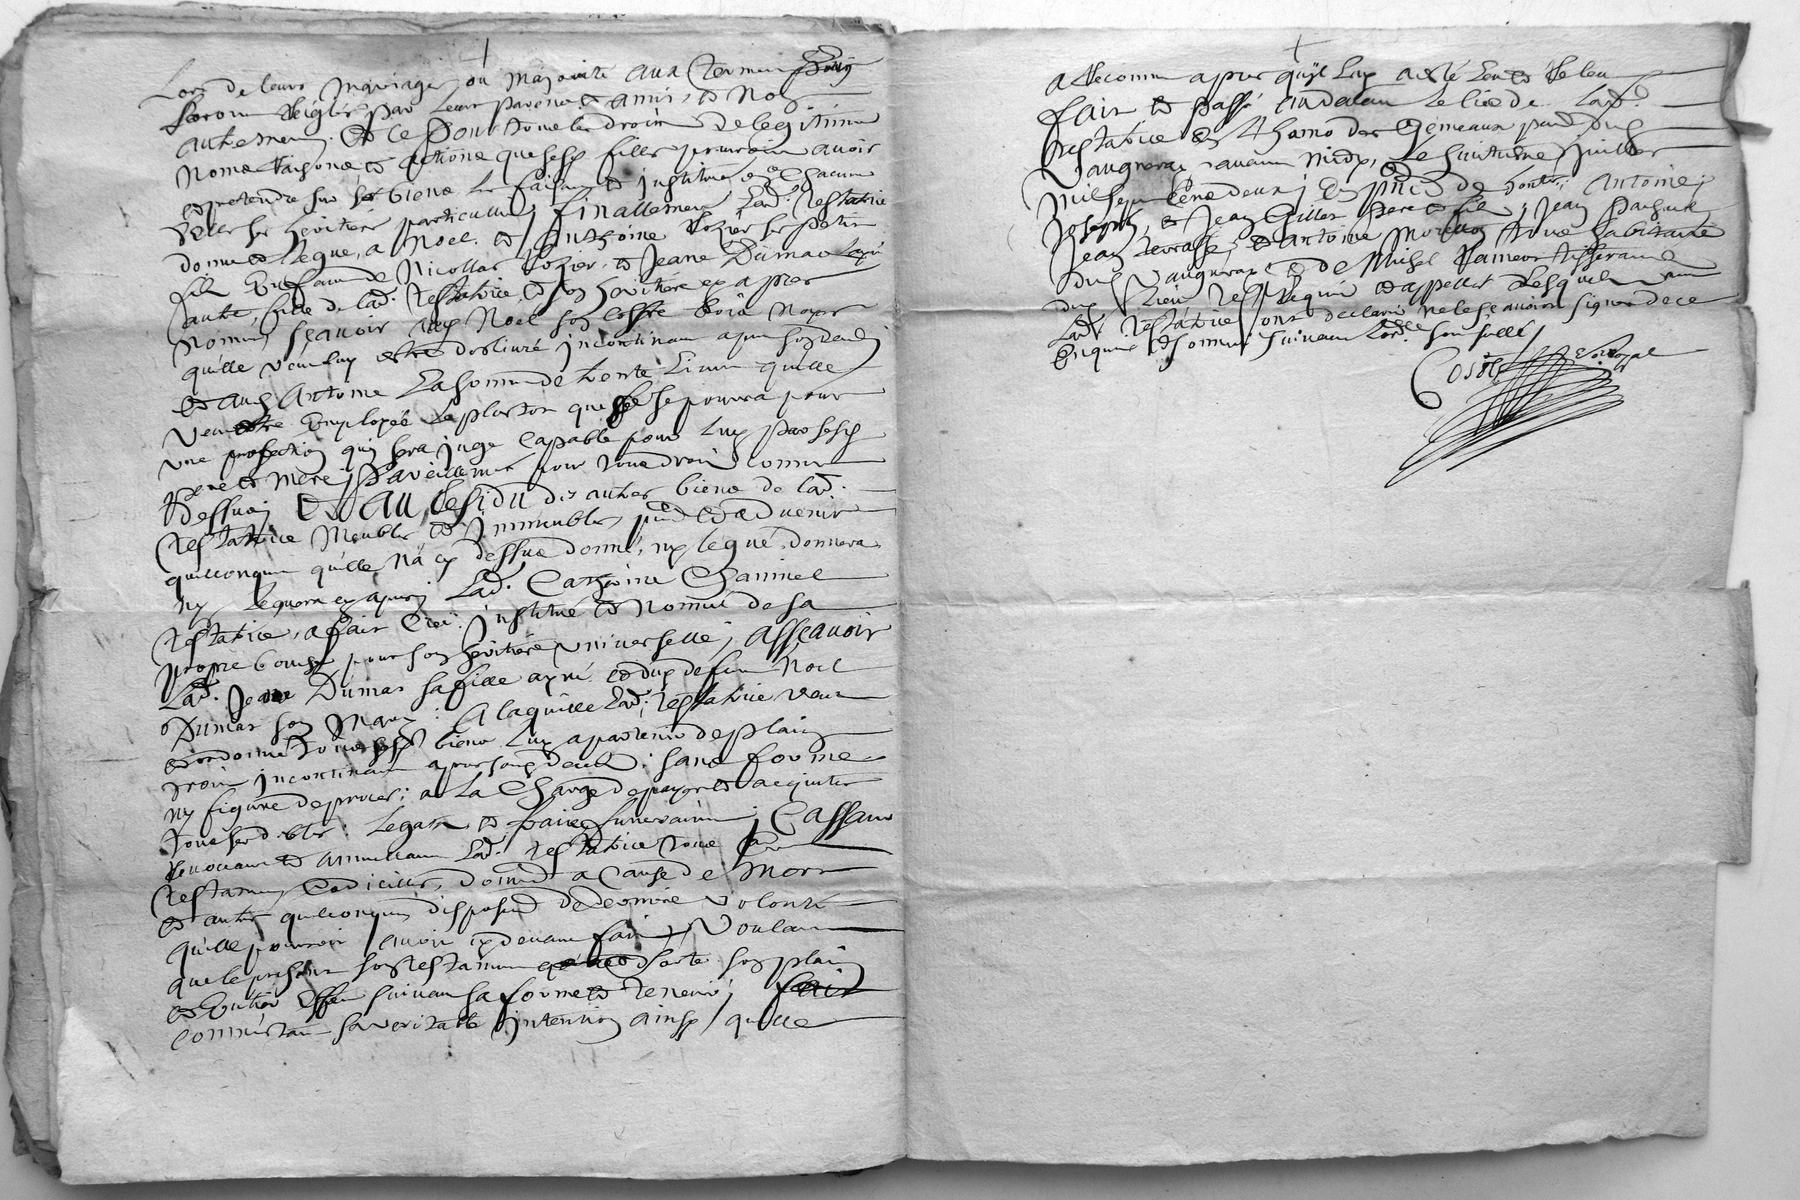 Lors de leurs mariage ou majorité aux termes
seront reiglés par leurs parens et amis, et non
autrement. Et ce pour tous les droits de legitime
noms raisons et actions que sesd. filles pourroint avoir
et pretendre sur ses biens les faisant et instituant en ce chacune
d'elles ses heritieres particulieres; finallement lad. testatrice
donne et legue, a Noel. et Anthoine Rozier ses petits
fils enfans de Nicollas Rozier, et Jeane Dumas
autre fille de lad. testatrice, et son heritiere cy apres
nomée, sçavoir aud. Noel son coffre bois noyer
qu'elle veut luy estre deslivré incontinant apres son deceds
et aud. Antoine la somme de trente livres qu'elle
veut estre employée le plustost que se pourra pour
une profession quy sera jugé capable pour luy par sesd.
pere et mere; pareillement pour tous droits comme
dessus; Et au residu des autres biens de lad.
testatrice meubles et immeubles, pnts et advenir
quelconques qu'elle n'a cy dessus donné, ny legué, donnera
ny leguera cy apres; Lad. Catherine Chaninel
testatrice, a fait creé. institué et nommé de sa
propre bouche pour son heritiere universelle; assçavoir
Lad. Jeane Dumas sa fille ayné et dud. deffunt Noel
Dumas son mary; A laquelle lad. testatrice veut
et ordonne tous sesd. biens luy apartenir de plain
droit incontinant apres son deceds; sans forme
ny figure de proces; a la charge de payer et acquiter
tous ses debtes. legats et frais funeraires; Cassant
revocant et annullant lad. testatrice tous
testamens, codicilles, donnations a cause de mort
et autres quelconques disposions de derniere volonté
qu'elle pourroit avoir cy devant fait, voulant
que le present son testament sorte son plain
et entier effet suivant sa forme et teneur;
comme estant sa veritable intention ainsy qu'elle
a recognu apres qu'yl luy a esté leu et releu
fait et passé au devant le lieu de lad.
testatrice et chams des Gemeaux pnd. dud.
Vaugneray avant midy, le huitiesme juillet
mil sept cens deux; En pnce de honts; Antoine;
Joseph; et Jean Gillet pere et fils; Jean
Jean; et Antoine tous habitants
dud. Vaugneray et de Michel tisserand
dud. lieu tesms requis et appellés lesquels avec
lad. testatrice ont declaré ne le sçavoir signer de ce
enquis et sommés suivant lord.ce son seellé
Coste no.re royal